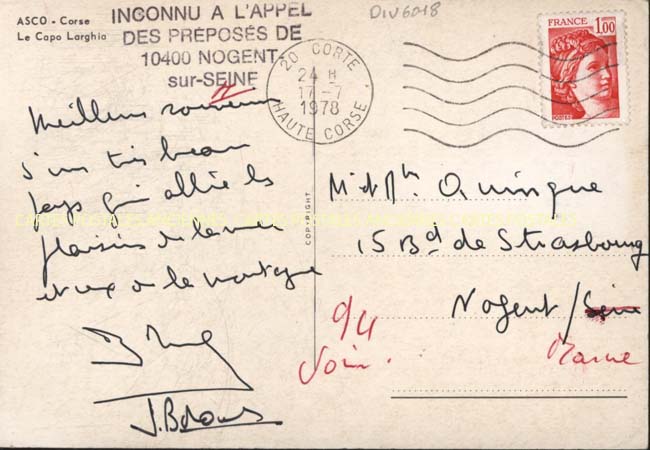 ASCO - Corse
Le Capo Larghia
INCONNU A L'APPEL
DES PRÉPOSÉS DE
10400 NOGENT-
sur-SEINE
DIV6018
20 CORTE
24 H
17-7
1978
HAUTE CORSE
FRANCE
1,00
POSTES
Meilleurs souvenirs
d'un très beau
pays qui allie les
plaisirs de la mer
et ceux de la montagne
COPYRIGHT
M et Mme Quinque
15 Bd de Strasbourg
Nogent / Seine
Marne
94
Voir.